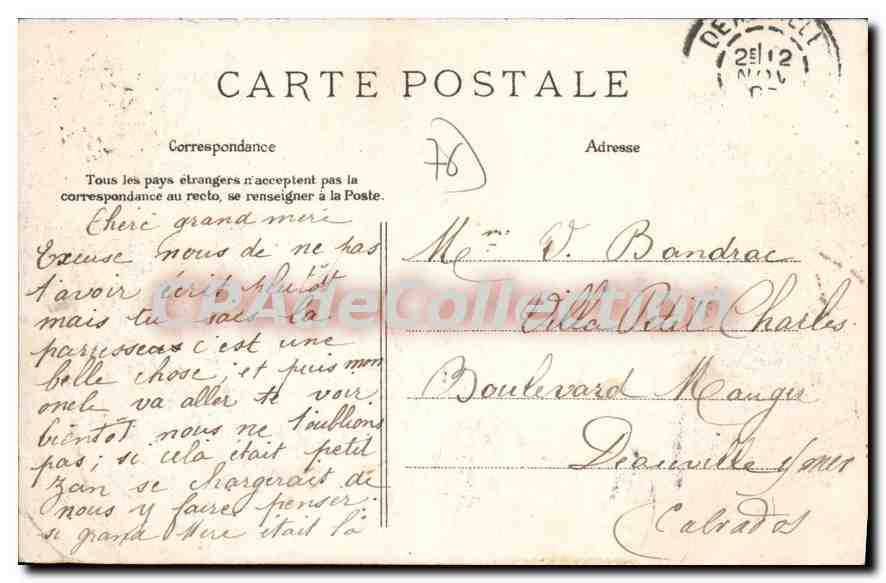 DEAUVILLE
2E 12
NOV
CARTE POSTALE
76
Correspondance
Adresse
Tous les pays étrangers n'acceptent pas la
correspondance au recto, se renseigner à la Poste.
Cheré grand meré
Excuse nous de ne pas
t'avoir écrit plutôt
mais tu sais la
c'est une
belle chose, et puis mon
oncle va aller te voir
bientôt nous ne t'oublions
pas; si cela était petit
Zan se chargerait de
nous y faire penser.
si grand Mere était là
Mme V. Bandrac
Villa Petit Charles.
Boulevard Mauger
Deauville s/mer
Calvados
CPAdeCollection